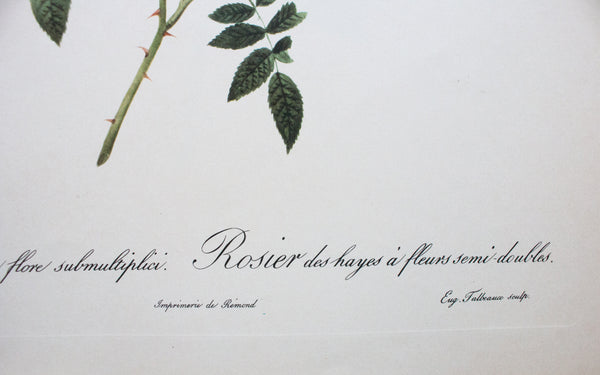 flore submultiplici. Rosier des hayes à fleurs semi-doubles.
Imprimerie de Rémond Eug. Talbeaux sculp.